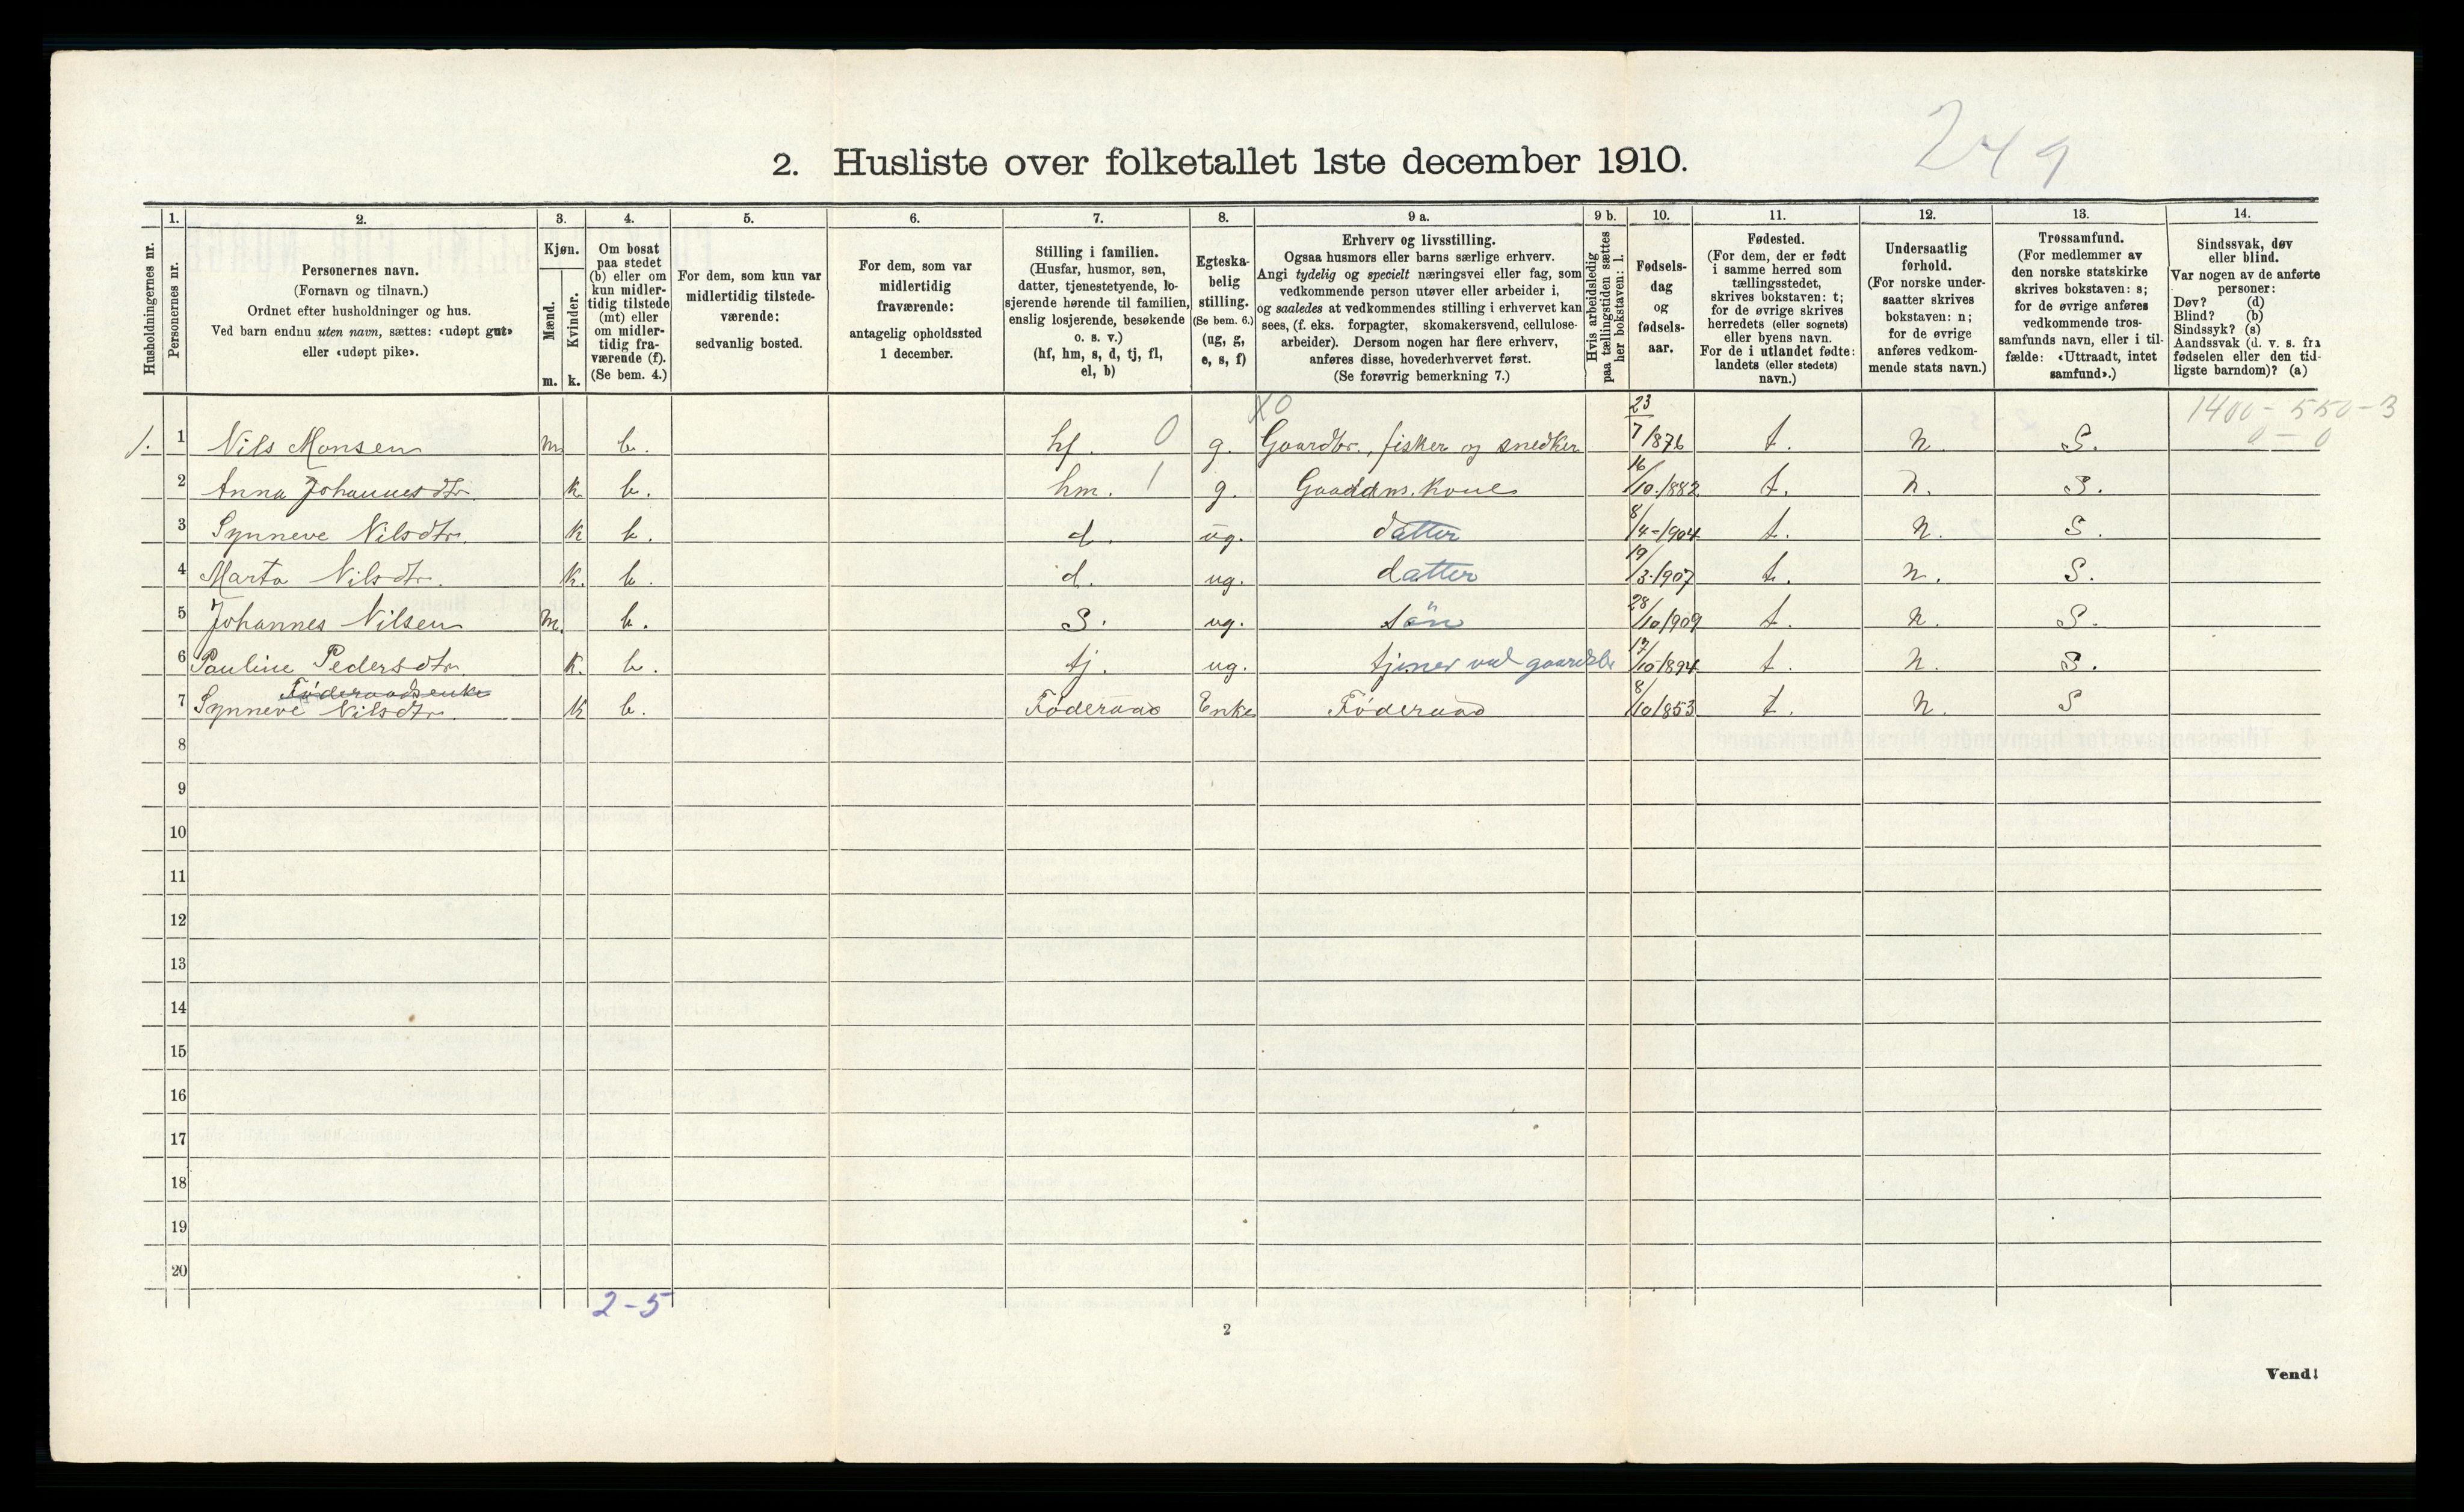 249
2. Husliste over folketallet 1ste december 1910.
Husholdningernes nr.
1.
Personernes nr.
2.
Personernes navn.
(Fornavn og tilnavn.)
Ordnet efter husholdninger og hus.
Ved barn endnu uten navn, sættes: «udøpt gut»
eller «udøpt pike».
3.
Kjøn.
Mænd.
Kvinder.
m. k.
4.
Om bosat
paa stedet
(b) eller om
kun midler-
tidig tilstede
(mt) eller
om midler-
tidig fra-
værende (f).
(Se bem. 4.)
5.
For dem, som kun var
midlertidig tilstede-
værende:
sedvanlig bosted.
6.
For dem, som var
midlertidig
fraværende:
antagelig opholdssted
1 december.
7.
Stilling i familien.
(Husfar, husmor, søn,
datter, tjenestetyende, lo-
sjerende hørende til familien,
enslig losjerende, besøkende
o. s. v.)
(hf, hm, s, d, tj, fl,
el, b)
8.
Egteska-
belig
stilling.
(Se bem. 6.)
(ug, g,
e, s, f)
9 a.
Erhverv og livsstilling.
Ogsaa husmors eller barns særlige erhverv.
Angi tydelig og specielt næringsvei eller fag, som
vedkommende person utøver eller arbeider i,
og saaledes at vedkommendes stilling i erhvervet kan
sees, (f. eks. forpagter, skomakersvend, cellulose-
arbeider). Dersom nogen har flere erhverv,
anføres disse, hovederhvervet først.
(Se forøvrig bemerkning 7.)
9 b.
Hvis arbeidsledig
paa tællingstiden sættes
her bokstaven: l.
10.
Fødsels-
dag
og
fødsels-
aar.
11.
Fødested.
(For dem, der er født
i samme herred som
tællingsstedet,
skrives bokstaven: t;
for de øvrige skrives
herredets (eller sognets)
eller byens navn.
For de i utlandet fødte:
landets (eller stedets)
navn.)
12.
Undersaatlig
forhold.
(For norske under-
saatter skrives
bokstaven: n;
for de øvrige
anføres vedkom-
mende stats navn.)
13.
Trossamfund.
(For medlemmer av
den norske statskirke
skrives bokstaven: s;
for de øvrige anføres
vedkommende tros-
samfunds navn, eller i til-
fælde: «Uttraadt, intet
samfund».)
14.
Sindssvak, døv
eller blind.
Var nogen av de anførte
personer:
Døv? (d)
Blind? (b)
Sindssyk? (s)
Aandssvak (d. v. s. fra
fødselen eller den tid-
ligste barndom)? (a)
X0
1400-550-3
0-0
1. 1 Nils Monsen m. b. hf. 0 g. Gaardbr., fisker og snedker 23/7/876 t. n. S.
2 Anna Johannesdtr. k. b. hm. 1 g. Gaardm. kone 16/10/882 t. n. S.
3 Synneve Nilsdtr. k b. d. ug. datter 8/4-1904 t. n. S.
4 Marta Nilsdtr. k. b. d. ug. datter 19/3-1907 t. n. S.
5 Johannes Nilsen m. b. S. ug. sön 28/10/909 t. n. S.
6 Pauline Pedersdtr. k. b. tj. ug. tjener ved gaardsbr 17/10/894 t. n. S.
Föderaadsenke
7 Synneve Nilsdtr. k b. Föderaad Enke Föderaad 8/10/853 t. n. S
8
9
10
11
12
13
14
15
16
17
18
19
20
2-5
2
Vend!